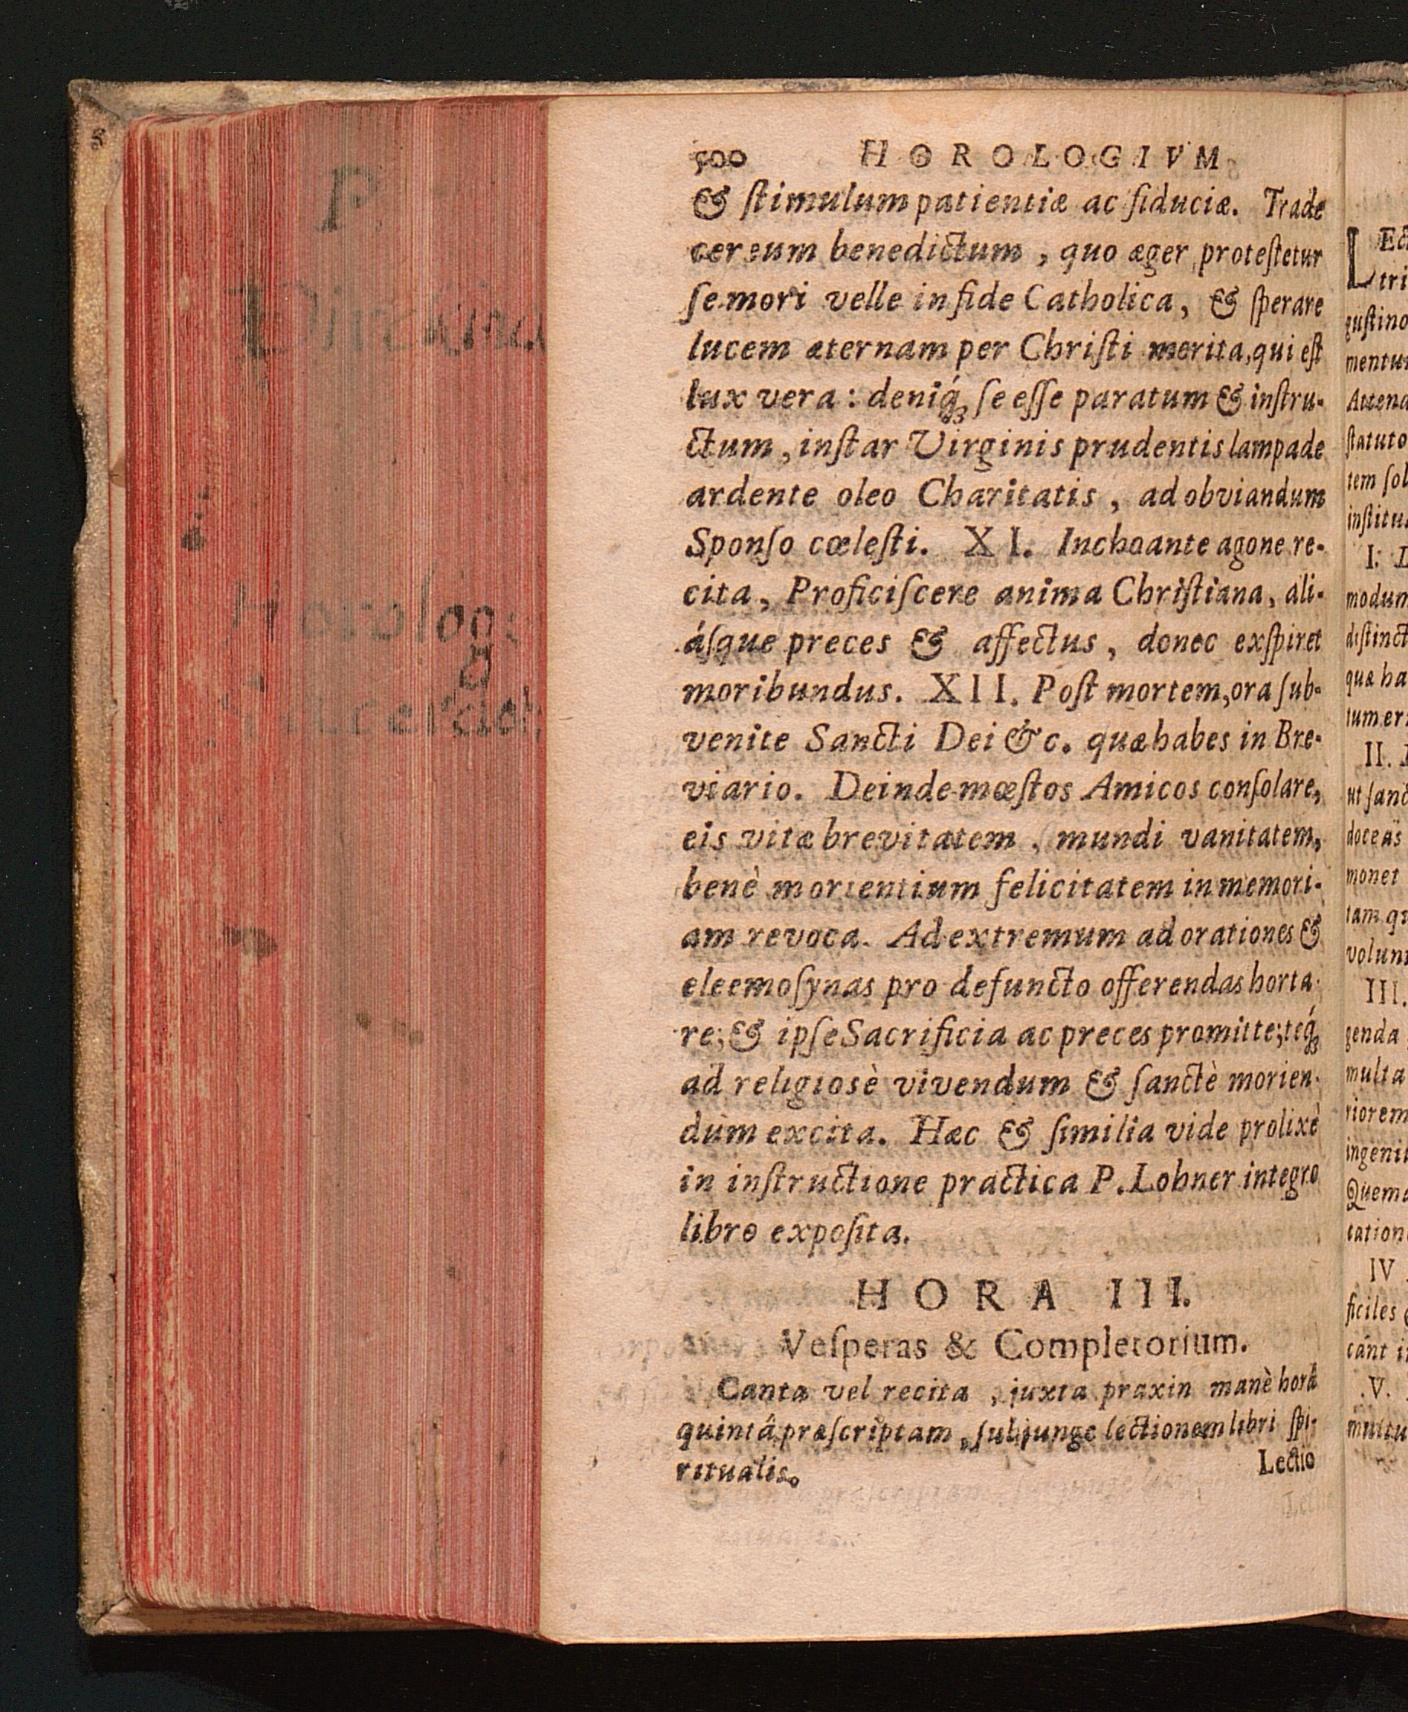 500 HOROLOGIVM
& ſtimulum patientiæ ac fiduciæ. Trade
cereum benedictum, quo æger proteſtetur
ſe mori velle in fide Catholica, & ſperare
lucem æternam per Chriſti merita, qui eſt
lux vera: deniq́; ſe eſſe paratum & inſtru-
ctum, inſtar Virginis prudentis lampade
ardente oleo Charitatis, ad obviandum
Sponſo cœleſti. XI. Inchoante agone re-
cita, Proficiſcere anima Chriſtiana, ali-
áſque preces & affectus, donec exſpiret
moribundus. XII. Poſt mortem, ora ſub-
venite Sancti Dei &c. quæ habes in Bre-
viario. Deinde mœſtos Amicos conſolare,
eis vitæ brevitatem, mundi vanitatem,
benè morientium felicitatem in memori-
am revoca. Ad extremum ad orationes &
eleemoſynas pro defuncto offerendas horta-
re; & ipſe Sacrificia ac preces promitte; teq́;
ad religiosè vivendum & ſanctè morien-
dum excita. Hæc & ſimilia vide prolixè
in inſtructione practica P. Lohner integro
libro expoſita.
HORA III.
Veſperas & Completorium.
Canta vel recita, juxta praxin manè horâ
quintâ præſcriptam, ſubjunge lectionem libri ſpi-
ritualis.
Lectio
P.
Horolog
LEct
tri
guſtino
mentu
ſtatuto
tem ſol
inſtitu
I.
modum
diſtinct
quæ ha
tum er
II.
ut ſanc
doceas
monet
tam qu
volun
III.
genda
multa
riorem
ingeni
Quema
tation
IV
ficiles
cant i
V.
multu